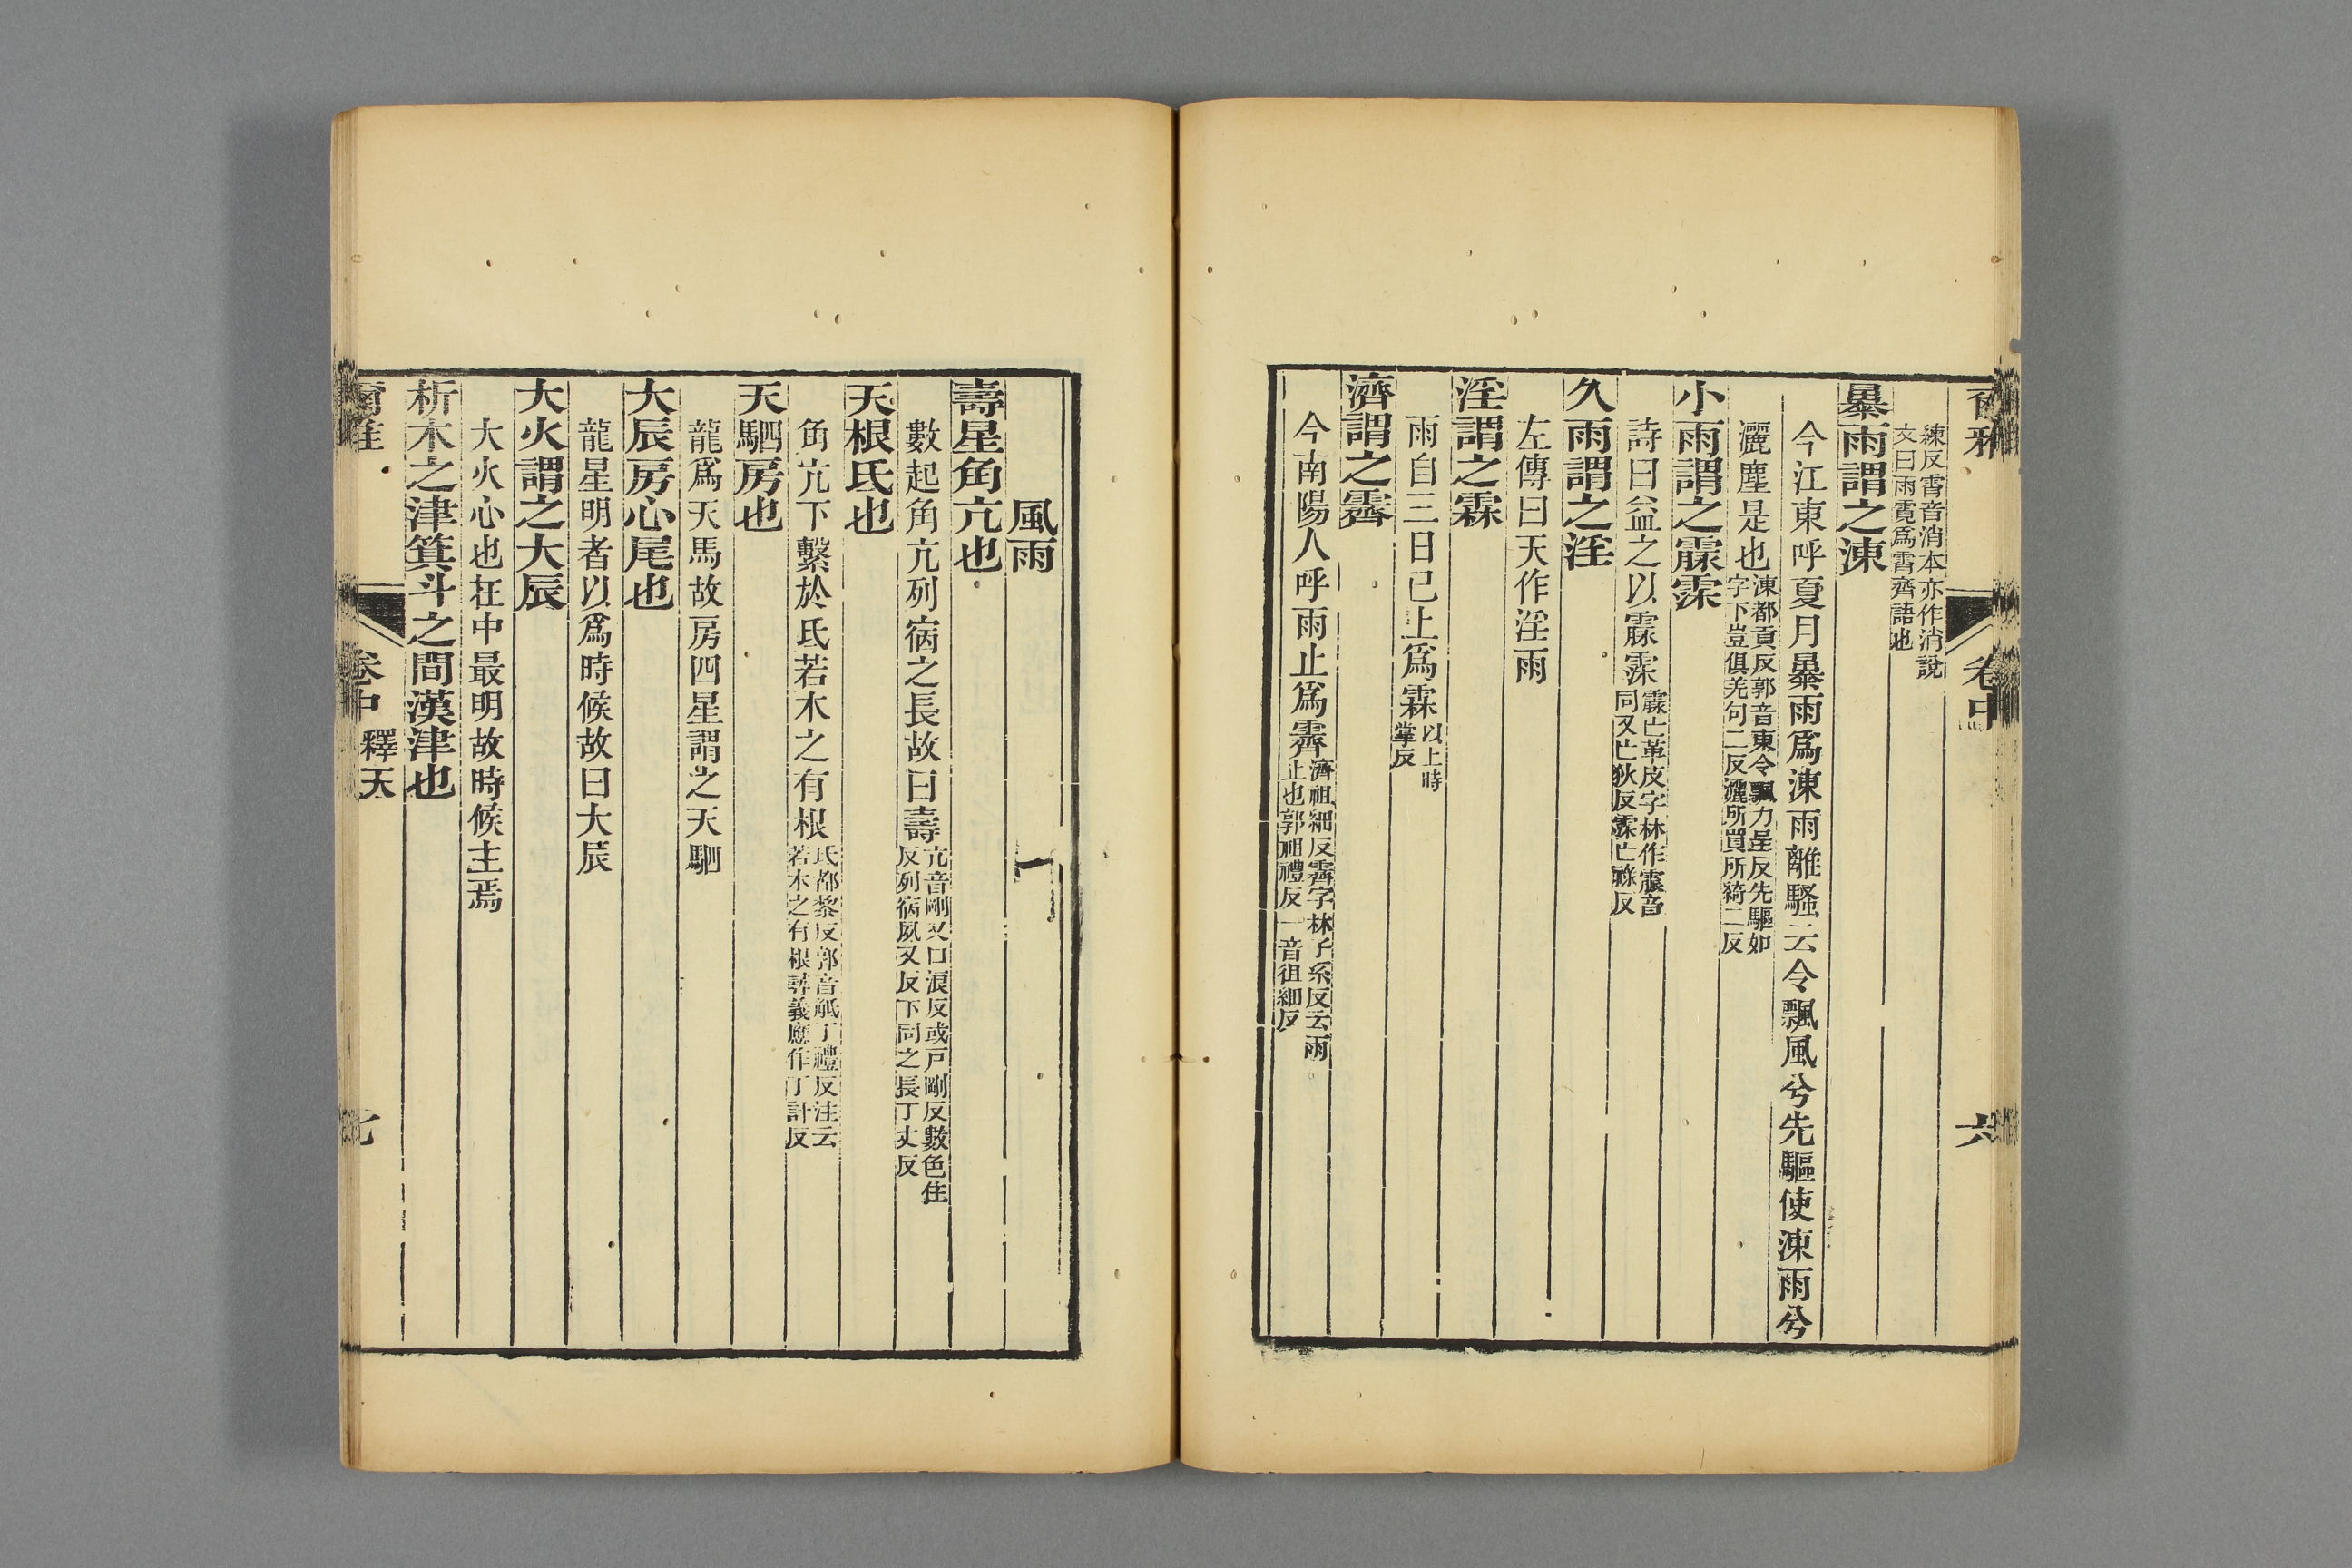 爾雅 卷中 六
練反霄音消本亦作消說
文曰雨霓爲霄齊語也
暴雨謂之涷
今江東呼夏月暴雨爲涷雨離騷云令飄風兮先驅使涷雨兮
灑塵是也涷都貢反郭音東令飄力呈反先驅如
字下豈俱羌句二反灑所買所綺二反
小雨謂之霢霂
詩曰益之以霢霂霢亡革反字林作䨫音
同又亡狄反霂亡祿反
久雨謂之淫
左傳曰天作淫雨
淫謂之霖
雨自三日已上爲霖以上時
掌反
濟謂之霽
今南陽人呼雨止爲霽濟祖細反霽字林子系反云雨
止也郭祖禮反一音徂細反
風雨
壽星角亢也
數起角亢列宿之長故曰壽亢音剛又口浪反或戸剛反數色住
反列宿夙又反下同之長丁丈反
天根氐也
角亢下繫於氐若木之有根氐都黎反郭音觝丁禮反注云
若木之有根辥義應作丁計反
天駟房也
龍爲天馬故房四星謂之天駟
大辰房心尾也
龍星明者以爲時候故曰大辰
大火謂之大辰
大火心也在中最明故時候主焉
析木之津箕斗之間漢津也
爾雅 卷中 釋天 七